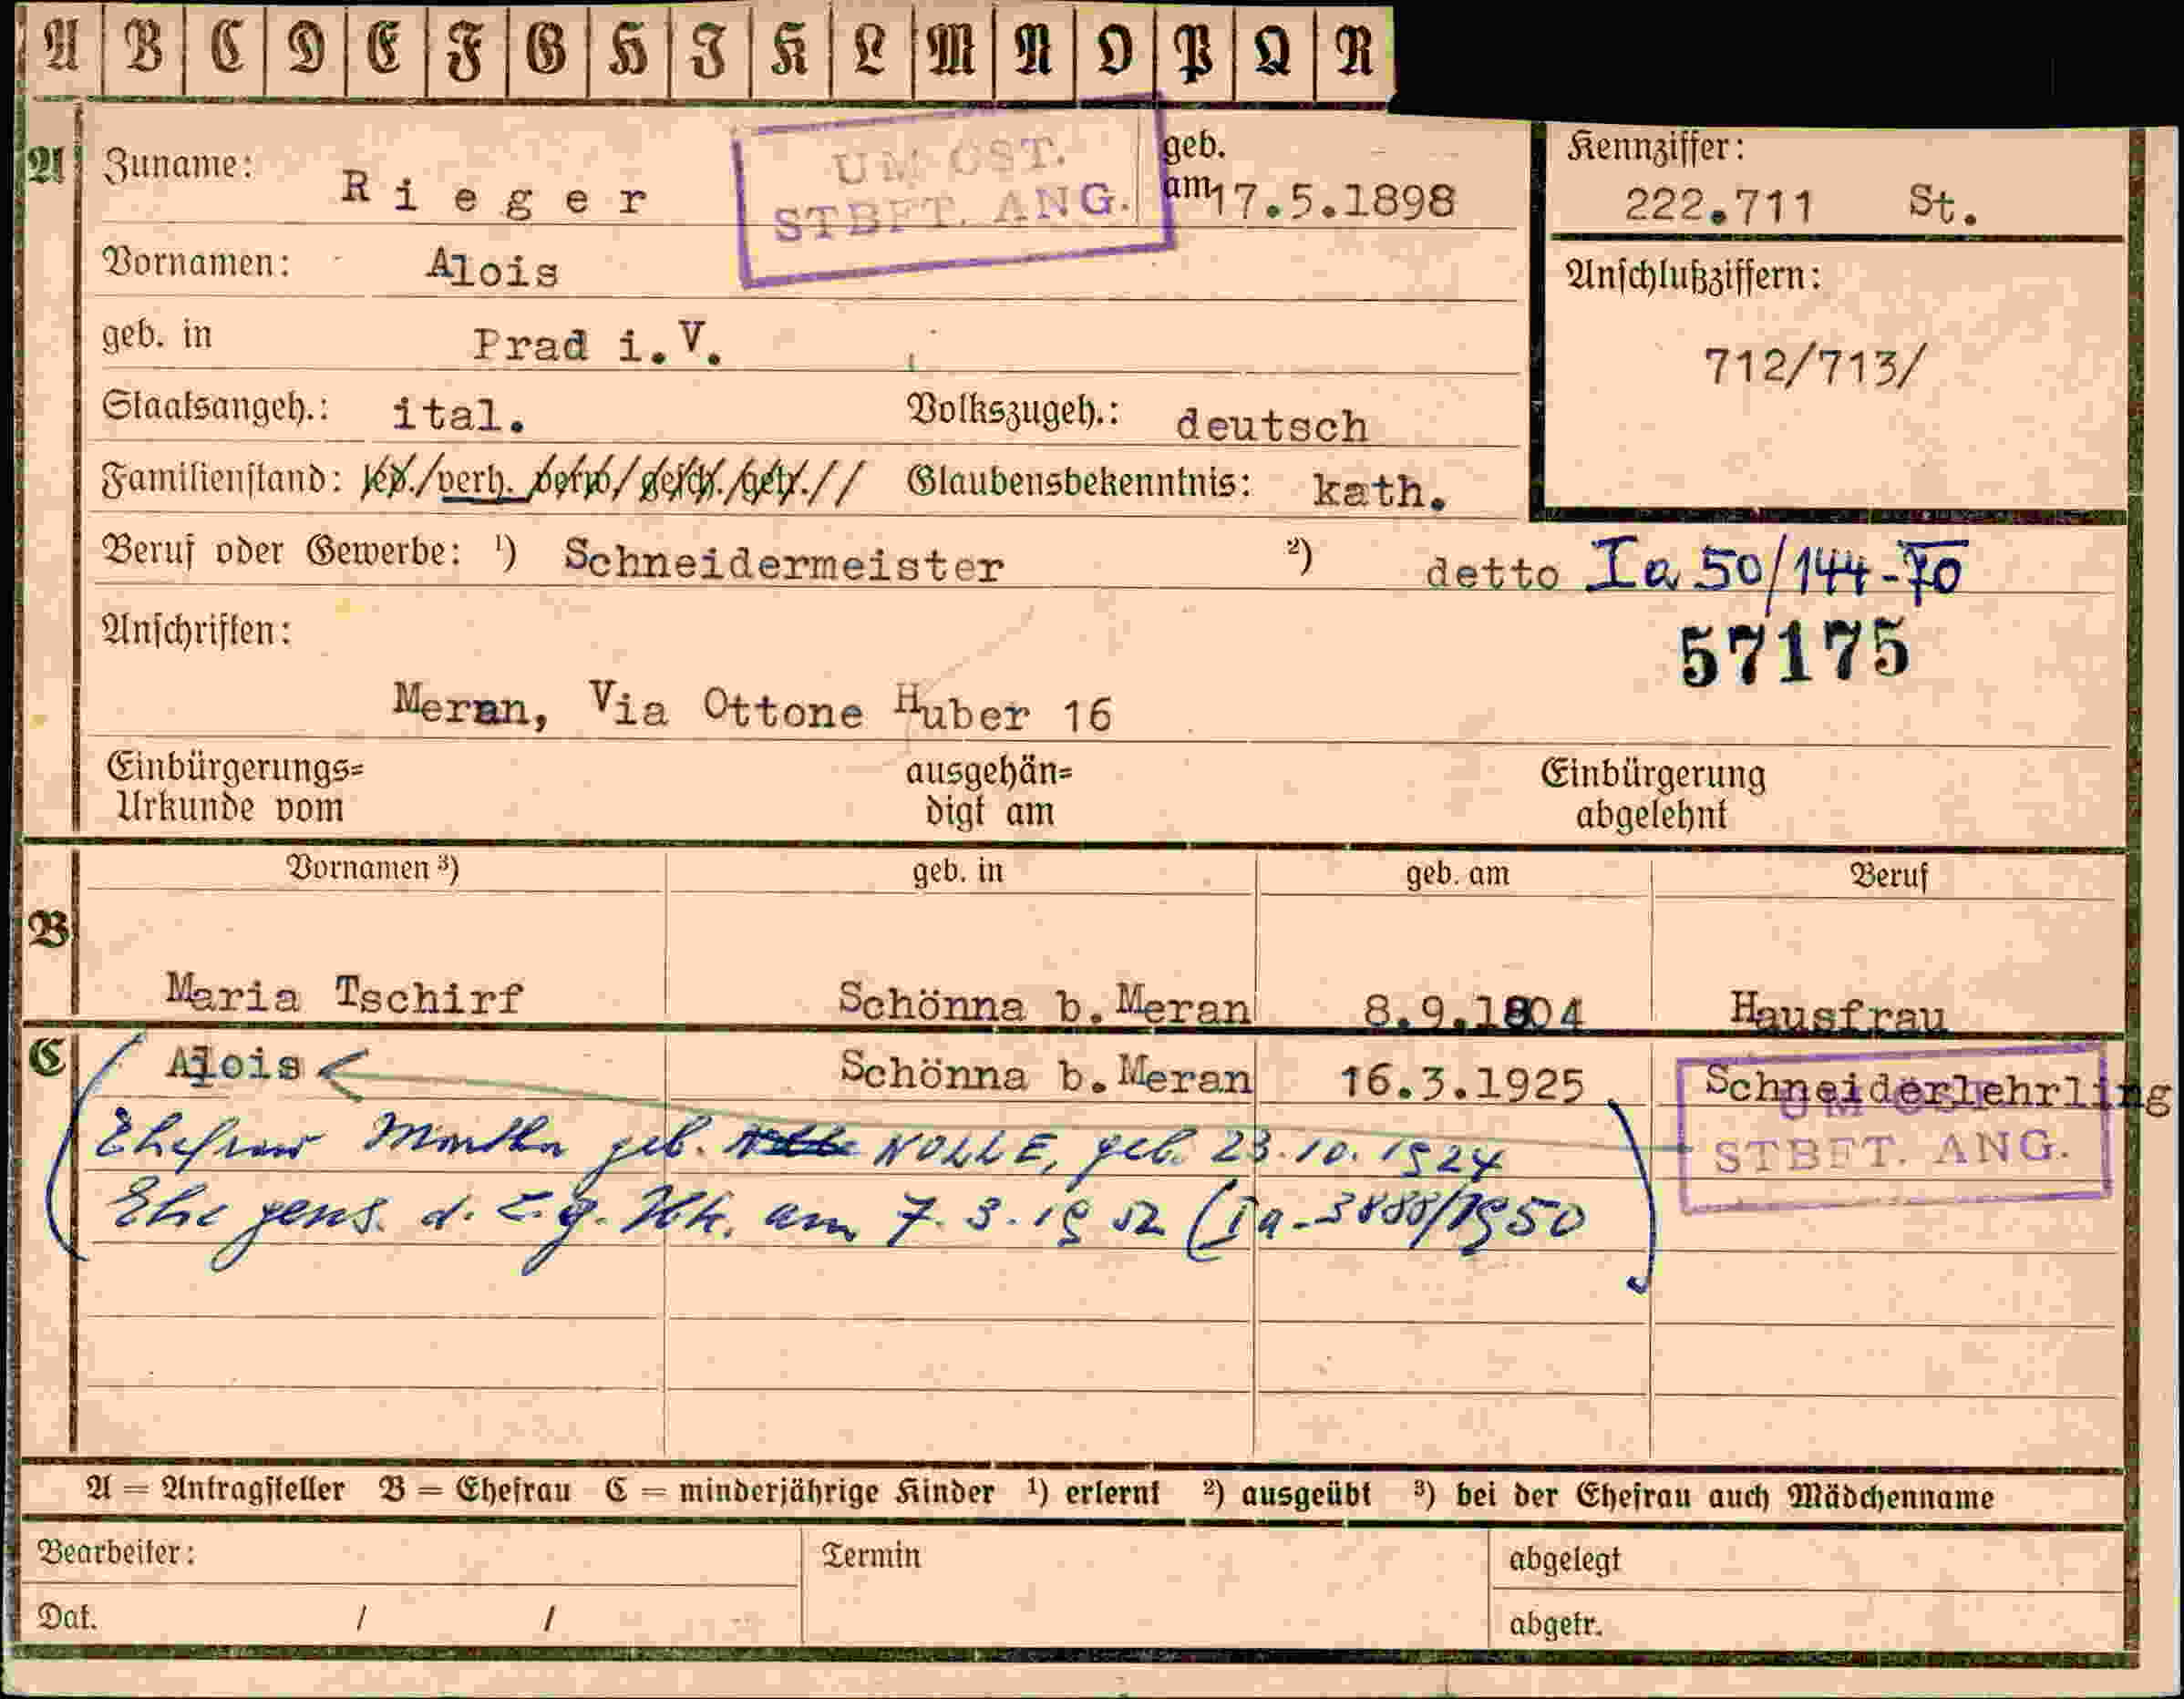 A B C D E F G H J K L M N O P Q R
A Zuname: Rieger geb. am 17.5.1898
UM ÖST.
STBFT. ANG.
Kennziffer:
222.711 St.
Vornamen: Alois
Anschlußziffern:
712/713/
geb. in Prad i.V.
Staatsangeh.: ital. Volkszugeh.: deutsch
Familienstand: led./verh. verw/gesch./getr.// Glaubensbekenntnis: kath.
Beruf oder Gewerbe: ¹) Schneidermeister ²) detto Ia 50/144-70
57175
Anschriften:
Meran, Via Ottone Huber 16
Einbürgerungs= ausgehän= Einbürgerung
Urkunde vom digt am abgelehnt
Vornamen ³) geb. in geb. am Beruf
B
Maria Tschirf Schönna b.Meran 8.9.1904 Hausfrau
C Alois Schönna b.Meran 16.3.1925 Schneiderlehrling
STBFT. ANG.
Ehefrau geb. NOLLE, geb. 23.10.1924
Ehe d. am 7.3.1952 (Ia-3888/1950
A = Antragsteller B = Ehefrau C = minderjährige Kinder ¹) erlernt ²) ausgeübt ³) bei der Ehefrau auch Mädchenname
Bearbeiter: Termin abgelegt
Dat. / / abgetr.